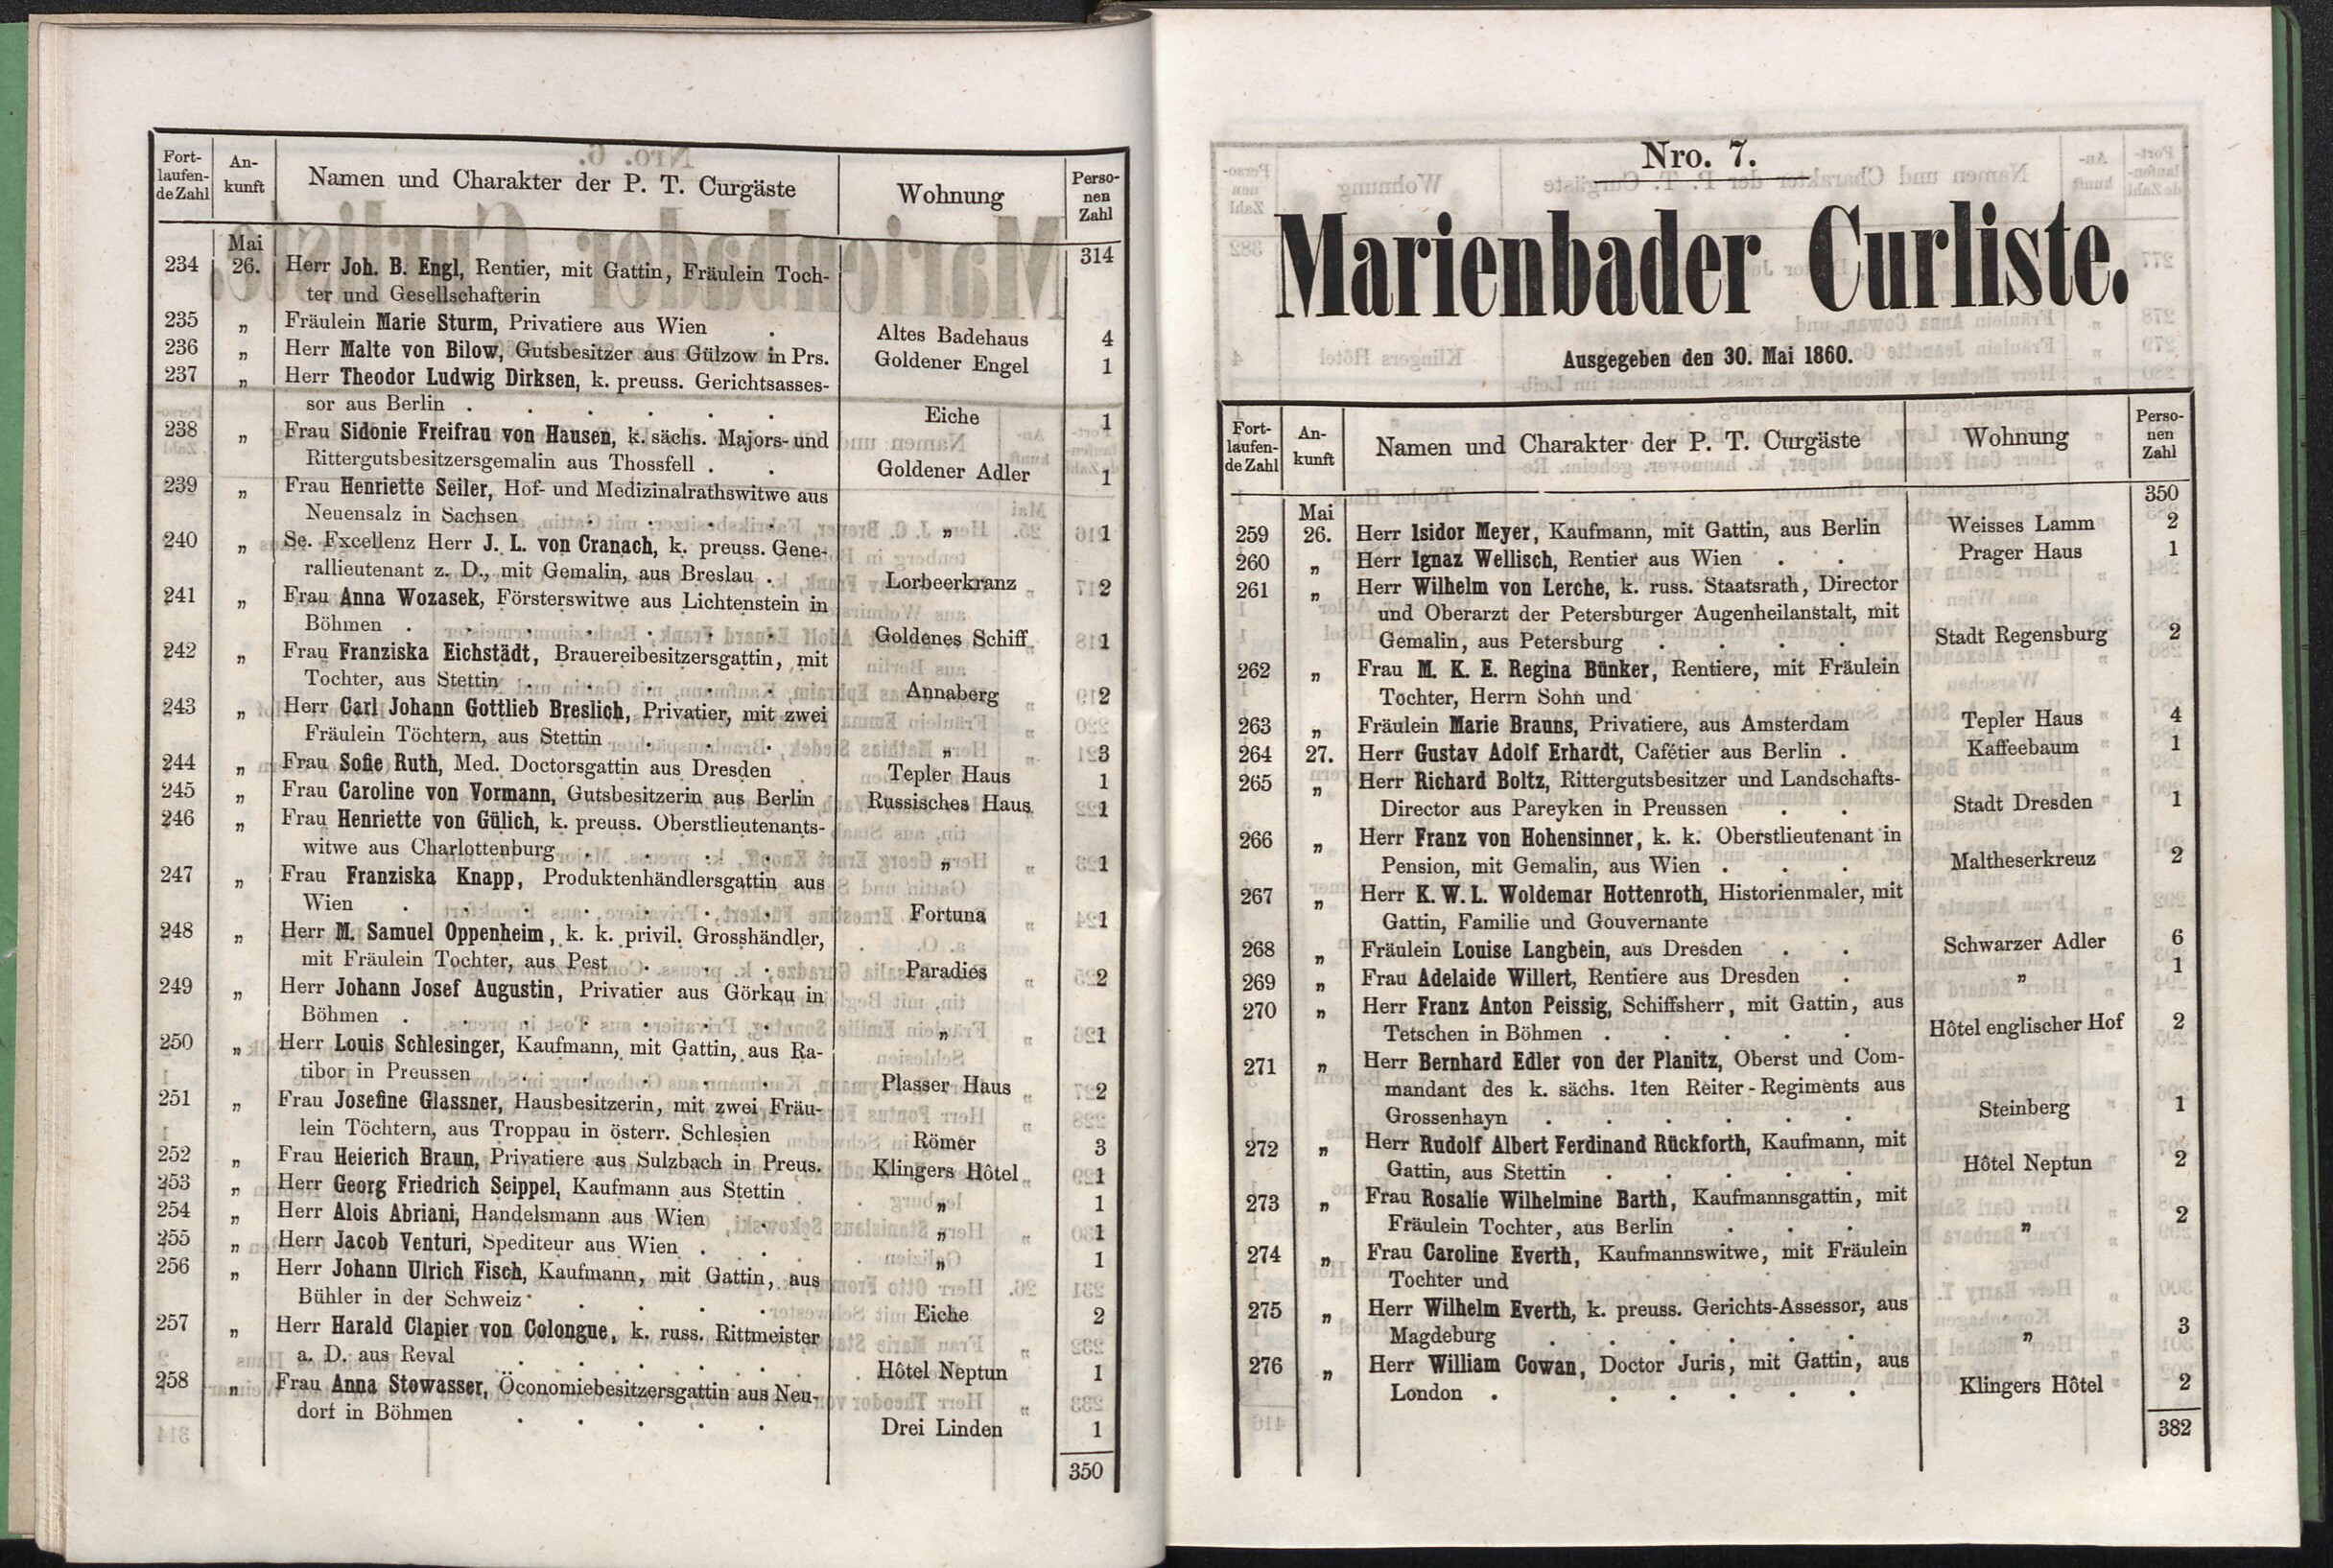 Fort-
laufen-
de Zahl
An-
kunft
Namen und Charakter der P. T. Curgäste
Wohnung
Perso-
nen
Zahl
314
Mai
234 26. Herr Joh. B. Engl, Rentier, mit Gattin, Fräulein Toch-
ter und Gesellschafterin
235 „ Fräulein Marie Sturm, Privatiere aus Wien . Altes Badehaus 4
236 „ Herr Malte von Bilow, Gutsbesitzer aus Gülzow in Prs. Goldener Engel 1
237 „ Herr Theodor Ludwig Dirksen, k. preuss. Gerichtsasses-
sor aus Berlin . . . . . . Eiche 1
238 „ Frau Sidonie Freifrau von Hausen, k. sächs. Majors- und
Rittergutsbesitzersgemalin aus Thossfell . . Goldener Adler 1
239 „ Frau Henriette Seiler, Hof- und Medizinalrathswitwe aus
Neuensalz in Sachsen . . . . „ 1
240 „ Se. Excellenz Herr J. L. von Cranach, k. preuss. Gene-
rallieutenant z. D., mit Gemalin, aus Breslau . Lorbeerkranz 2
241 „ Frau Anna Wozasek, Försterswitwe aus Lichtenstein in
Böhmen . . . . . . . Goldenes Schiff 1
242 „ Frau Franziska Eichstädt, Brauereibesitzersgattin, mit
Tochter, aus Stettin . . . . . Annaberg 2
243 „ Herr Carl Johann Gottlieb Breslich, Privatier, mit zwei
Fräulein Töchtern, aus Stettin . . . „ 3
244 „ Frau Sofie Ruth, Med. Doctorsgattin aus Dresden . Tepler Haus 1
245 „ Frau Caroline von Vormann, Gutsbesitzerin aus Berlin Russisches Haus 1
246 „ Frau Henriette von Gülich, k. preuss. Oberstlieutenants-
witwe aus Charlottenburg . . . . „ 1
247 „ Frau Franziska Knapp, Produktenhändlersgattin aus
Wien . . . . . . . Fortuna 1
248 „ Herr M. Samuel Oppenheim, k. k. privil. Grosshändler,
mit Fräulein Tochter, aus Pest . . . Paradies 2
249 „ Herr Johann Josef Augustin, Privatier aus Görkau in
Böhmen . . . . . . . „ 1
250 „ Herr Louis Schlesinger, Kaufmann, mit Gattin, aus Ra-
tibor in Preussen . . . . . Plasser Haus 2
251 „ Frau Josefine Glassner, Hausbesitzerin, mit zwei Fräu-
lein Töchtern, aus Troppau in österr. Schlesien Römer 3
252 „ Frau Heierich Braun, Privatiere aus Sulzbach in Preus. Klingers Hôtel 1
253 „ Herr Georg Friedrich Seippel, Kaufmann aus Stettin „ 1
254 „ Herr Alois Abriani, Handelsmann aus Wien . „ 1
255 „ Herr Jacob Venturi, Spediteur aus Wien . . „ 1
256 „ Herr Johann Ulrich Fisch, Kaufmann, mit Gattin, aus
Bühler in der Schweiz . . . . Eiche 2
257 „ Herr Harald Clapier von Colongue, k. russ. Rittmeister
a. D. aus Reval . . . . . . Hôtel Neptun 1
258 „ Frau Anna Stowasser, Öconomiebesitzersgattin aus Neu-
dorf in Böhmen . . . . . Drei Linden 1
350
Nro. 7.
Marienbader Curliste.
Ausgegeben den 30. Mai 1860.
Fort-
laufen-
de Zahl
An-
kunft
Namen und Charakter der P. T. Curgäste
Wohnung
Perso-
nen
Zahl
350
Mai
259 26. Herr Isidor Meyer, Kaufmann, mit Gattin, aus Berlin Weisses Lamm 2
260 „ Herr Ignaz Wellisch, Rentier aus Wien . . Prager Haus 1
261 „ Herr Wilhelm von Lerche, k. russ. Staatsrath, Director
und Oberarzt der Petersburger Augenheilanstalt, mit
Gemalin, aus Petersburg . . . . Stadt Regensburg 2
262 „ Frau M. K. E. Regina Bünker, Rentiere, mit Fräulein
Tochter, Herrn Sohn und
263 „ Fräulein Marie Brauns, Privatiere, aus Amsterdam Tepler Haus 4
264 27. Herr Gustav Adolf Erhardt, Cafétier aus Berlin . Kaffeebaum 1
265 „ Herr Richard Boltz, Rittergutsbesitzer und Landschafts-
Director aus Pareyken in Preussen . . Stadt Dresden 1
266 „ Herr Franz von Hohensinner, k. k. Oberstlieutenant in
Pension, mit Gemalin, aus Wien . . . Maltheserkreuz 2
267 „ Herr K. W. L. Woldemar Hottenroth, Historienmaler, mit
Gattin, Familie und Gouvernante
268 „ Fräulein Louise Langbein, aus Dresden . . Schwarzer Adler 6
269 „ Frau Adelaide Willert, Rentiere aus Dresden . „ 1
270 „ Herr Franz Anton Peissig, Schiffsherr, mit Gattin, aus
Tetschen in Böhmen . . . . . Hôtel englischer Hof 2
271 „ Herr Bernhard Edler von der Planitz, Oberst und Com-
mandant des k. sächs. 1ten Reiter-Regiments aus
Grossenhayn . . . . . . Steinberg 1
272 „ Herr Rudolf Albert Ferdinand Rückforth, Kaufmann, mit
Gattin, aus Stettin . . . . . Hôtel Neptun 2
273 „ Frau Rosalie Wilhelmine Barth, Kaufmannsgattin, mit
Fräulein Tochter, aus Berlin . . . „ 2
274 „ Frau Caroline Everth, Kaufmannswitwe, mit Fräulein
Tochter und
275 „ Herr Wilhelm Everth, k. preuss. Gerichts-Assessor, aus
Magdeburg . . . . . . „ 3
276 „ Herr William Cowan, Doctor Juris, mit Gattin, aus
London . . . . . . Klingers Hôtel 2
382